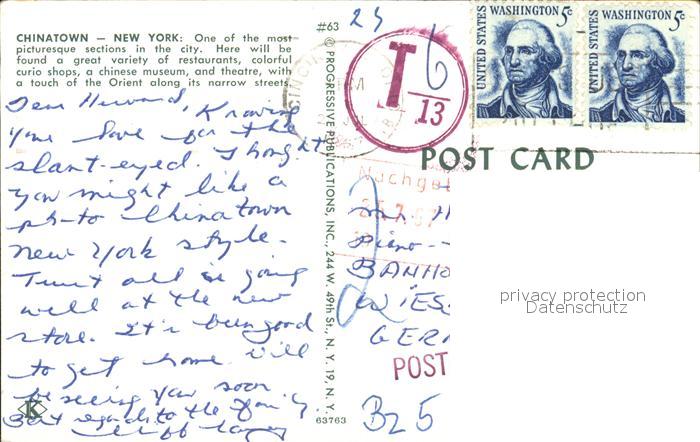 CHINATOWN — NEW YORK: One of the most
picturesque sections in the city. Here will be
found a great variety of restaurants, colorful
curio shops, a chinese museum, and theatre, with
a touch of the Orient along its narrow streets.
Dear Howard, Knowing
your love for the
slant-eyed. I thought
you might like a
photo Chinatown
New York style.
Trust all is going
well at the new
store. It's been good
to get home. Will
be seeing you soon
Best regards to the family.
K
#63
© PROGRESSIVE PUBLICATIONS, INC., 244 W. 49th St., N. Y. 19, N. Y.
63763
T
6
13
UNITED STATES
WASHINGTON 5c
UNITED STATES
WASHINGTON 5c
POST CARD
Nachge
25.7.67
Piano -
BANHO
WIES
GER
POST
B25
privacy protection
Datenschutz